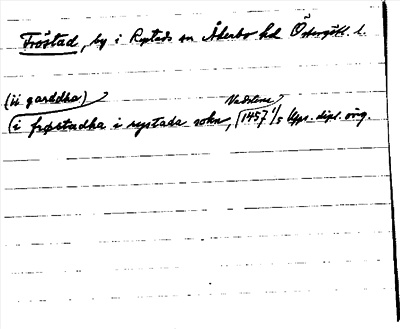 Fröstad, by i Rystads sn Åkerbo hd Östergötl. l.
(ii garddha)
Vadstena
(i frøstadha i rystada sokn, (1457 1/5 Upps. dipl. örig.